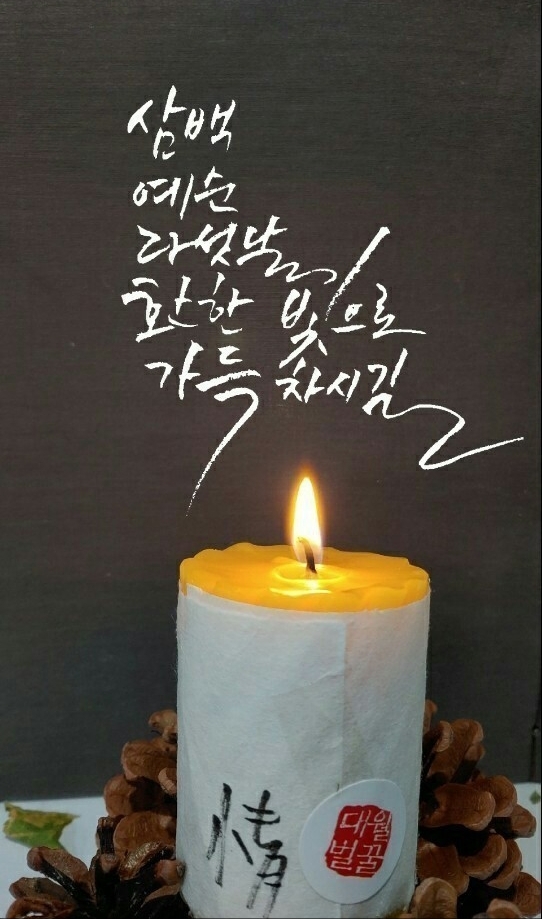 삼백
예순
다섯날
환한 빛으로
가득 차시길
情
대월
벌꿀